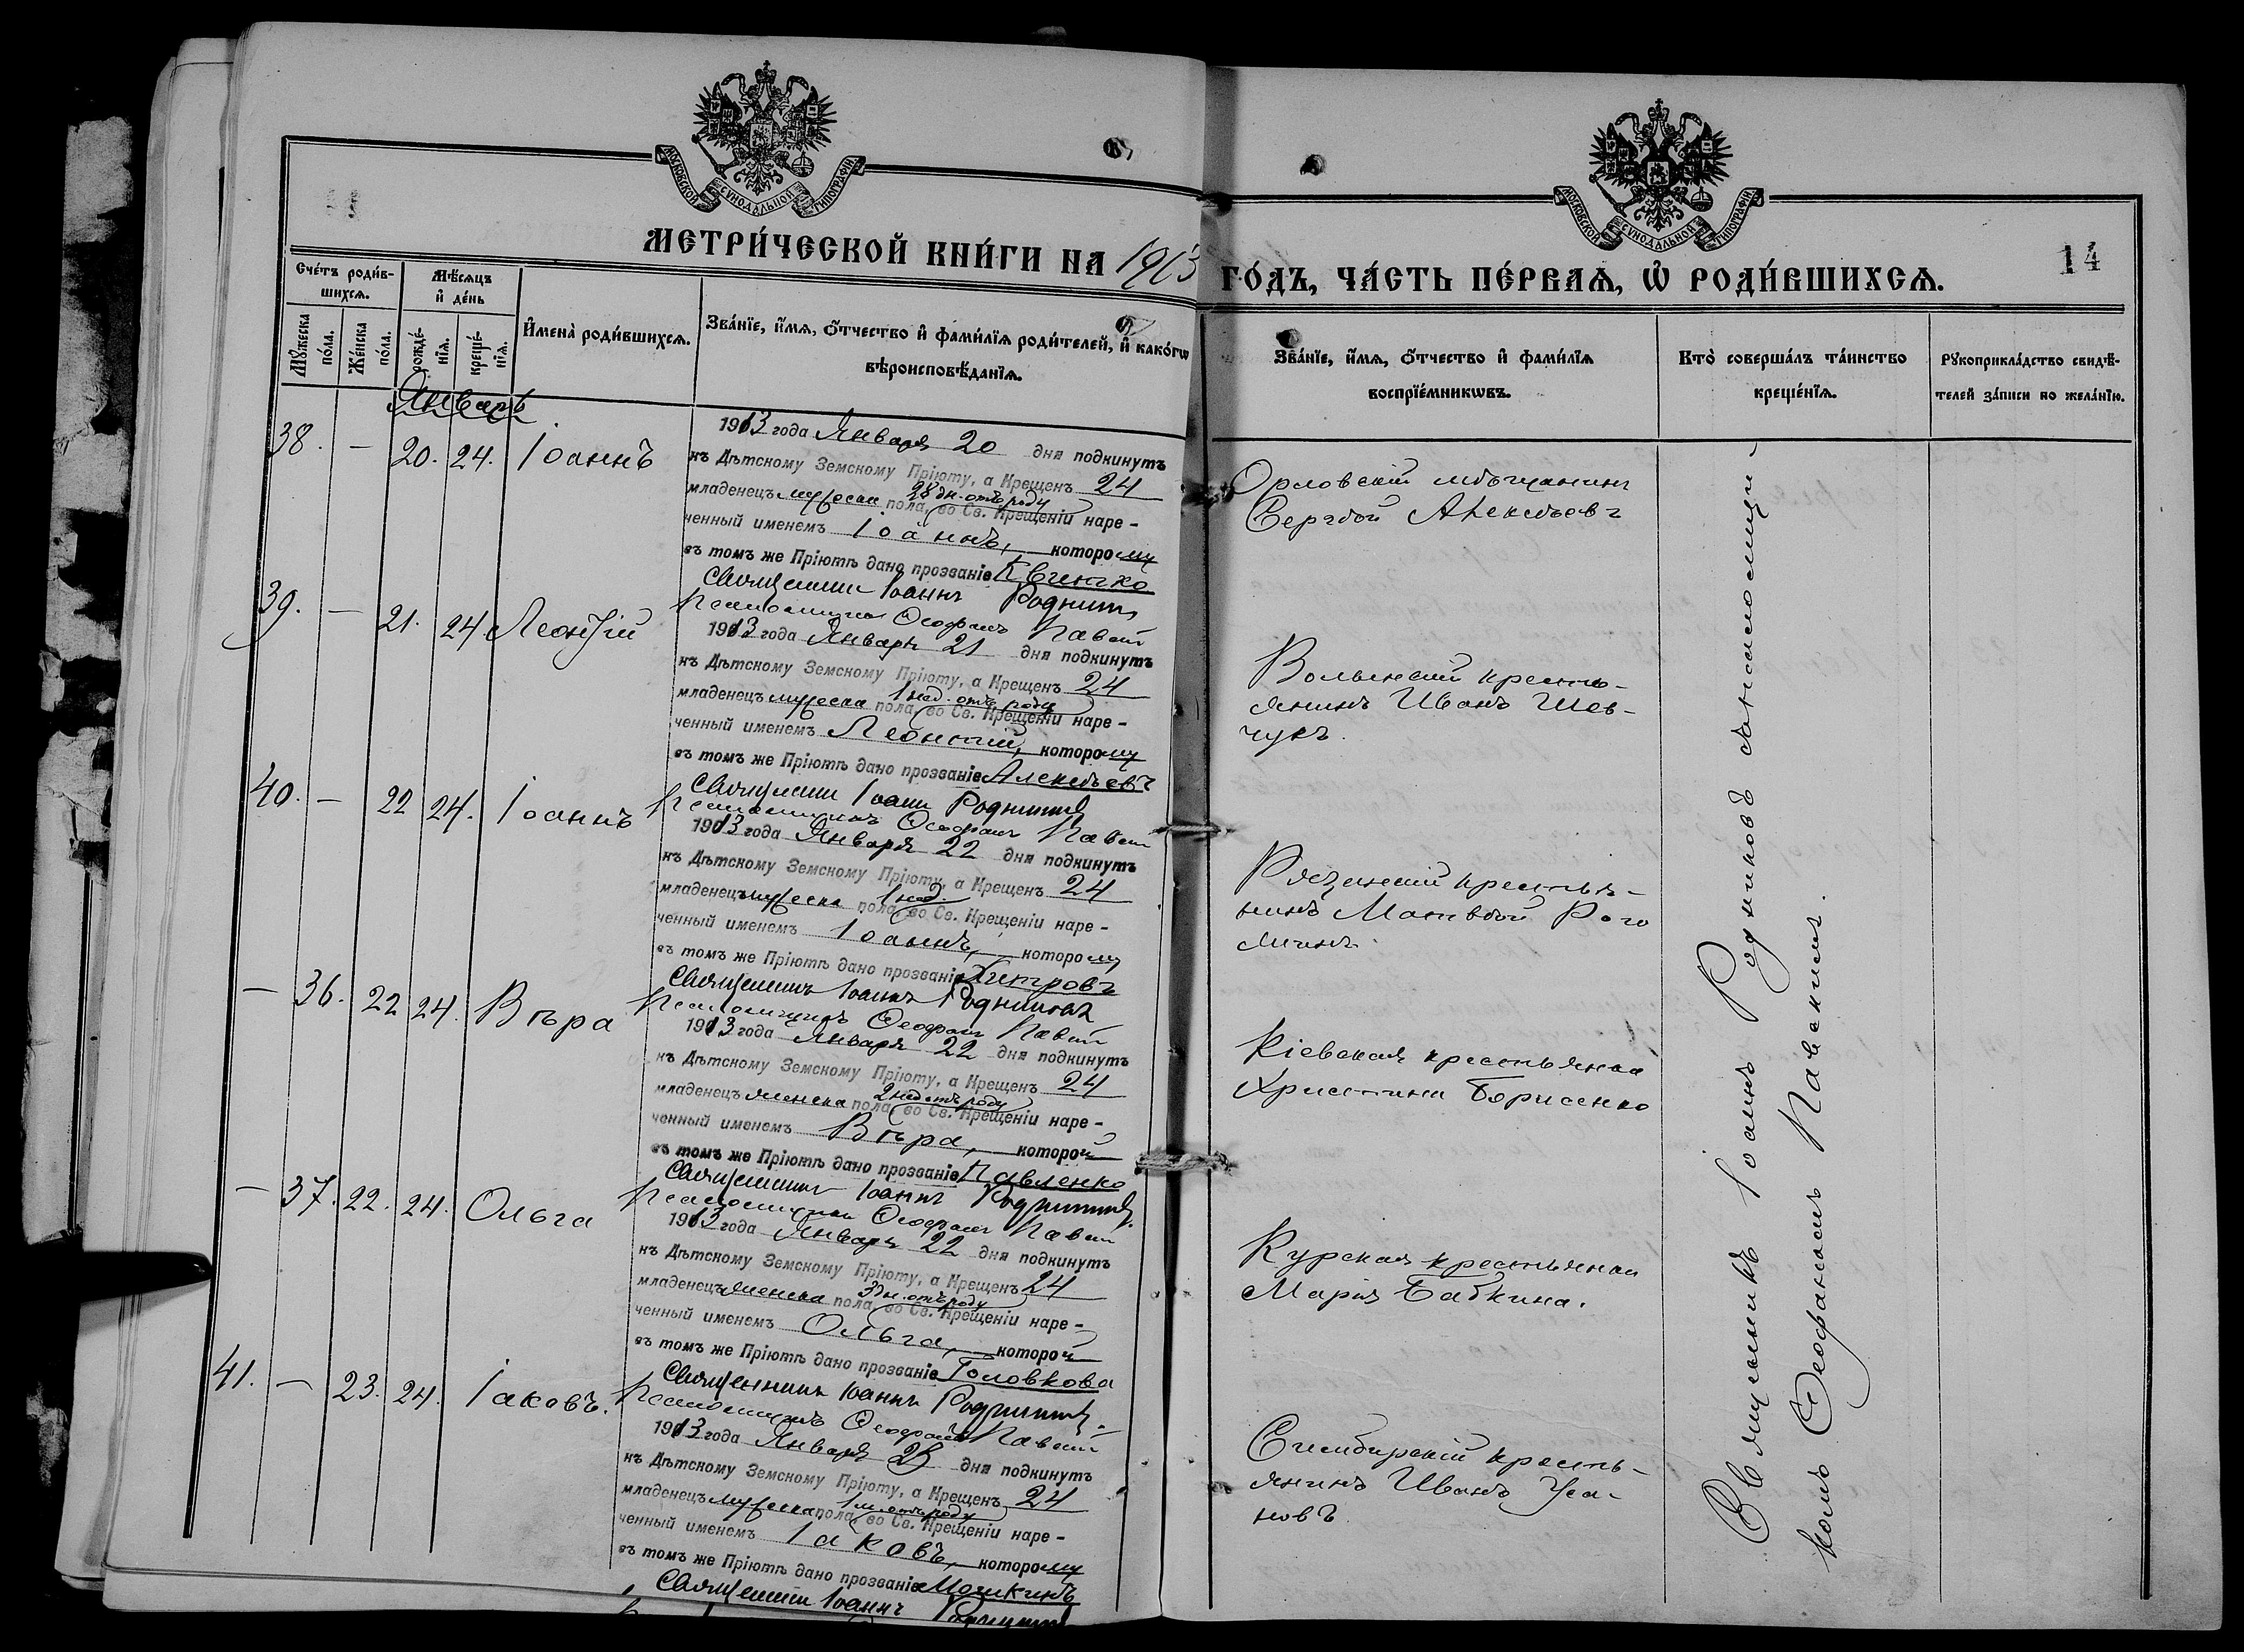 МОСКОВСКОЙ СѴНОДАЛЬНОЙ ТИПОГРАФІИ
МОСКОВСКОЙ СѴНОДАЛЬНОЙ ТИПОГРАФІИ
14
МЕТРИ́ЧЕСКОЙ КНИ́ГИ НА 1913 ГО́ДЪ, ЧА́СТЬ ПЕ́РВАѦ, Ѡ҆ РОДИ́ВШИХСѦ.
Сче́тъ роди́в-
шихсѧ.
Мѣ́сяцъ
и҆ де́нь
Мꙋ́жеска
по́ла.
Же́нска
по́ла.
рожде́-
нїѧ.
креще́-
нїѧ.
И҆мена̀ роди́вшихсѧ.
Зва́нїе, и҆́мѧ, ѻ҆́тчество и҆ фами́лїѧ роди́телей, и҆ како́гѡ
вѣроисповѣ́данїѧ.
Зва́нїе, и҆́мѧ, ѻ҆́тчество и҆ фами́лїѧ
воспрїе́мникѡвъ.
Кто̀ соверша́лъ та́инство
креще́нїѧ.
Рꙋкоприкла́дство свидѣ́-
телей за́писи по жела́нїю.
Январь
38. — 20. 24. Іоаннъ
1913 года Января 20 дня подкинутъ
къ Дѣтскому Земскому Пріюту, а Крещенъ 24
28 дн. отъ роду
младенецъ мужеска пола, во Св. Крещеніи наре-
ченный именемъ Іоаннъ, которому
въ томъ же Пріютѣ дано прозваніе Квитко
Священникъ Іоаннъ Родниковъ
Псаломщикъ Ѳеофанъ Павскій
Орловскій мѣщанинъ
Сергѣй Алексѣевъ
39. — 21. 24 Леонтій
1913 года Января 21 дня подкинутъ
къ Дѣтскому Земскому Пріюту, а Крещенъ 24
1 нед. отъ роду
младенецъ мужеска пола, во Св. Крещеніи наре-
ченный именемъ Леонтій, которому
въ томъ же Пріютѣ дано прозваніе Алексѣевъ
Священникъ Іоаннъ Родниковъ
Псаломщикъ Ѳеофанъ Павскій
Волынскій кресть-
янинъ Иванъ Шев-
чукъ.
40. — 22 24. Іоаннъ
1913 года Января 22 дня подкинутъ
къ Дѣтскому Земскому Пріюту, а Крещенъ 24
1 нед.
младенецъ мужеска пола, во Св. Крещеніи наре-
ченный именемъ Іоаннъ, которому
въ томъ же Пріютѣ дано прозваніе Хитровъ
Священникъ Іоаннъ Родниковъ
Псаломщикъ Ѳеофанъ Павскій
Рязанскій крестья-
нинъ Матвѣй Рого
— 36. 22 24. Вѣра
1913 года Января 22 дня подкинутъ
къ Дѣтскому Земскому Пріюту, а Крещенъ 24
2 нед отъ роду
младенецъ женска пола, во Св. Крещеніи наре-
ченный именемъ Вѣра, которой
въ томъ же Пріютѣ дано прозваніе Павленко
Священникъ Іоаннъ Родниковъ
Псаломщикъ Ѳеофанъ Павскій
Кіевская крестьянка
Христина Борисенко
— 37. 22. 24. Ольга
1913 года Января 22 дня подкинутъ
къ Дѣтскому Земскому Пріюту, а Крещенъ 24
3 дн. отъ роду
младенецъ женска пола, во Св. Крещеніи наре-
ченный именемъ Ольга, которой
въ томъ же Пріютѣ дано прозваніе Головкова
Священникъ Іоаннъ Родниковъ.
Псаломщикъ Ѳеофанъ Павскій
Курская крестьянка
Марія Бабкина.
41. — 23. 24. Іаковъ.
1913 года Января 23 дня подкинутъ
къ Дѣтскому Земскому Пріюту, а Крещенъ 24
1 м. отъ роду
младенецъ мужеска пола, во Св. Крещеніи наре-
ченный именемъ Іаковъ, которому
въ томъ же Пріютѣ дано прозваніе Мошкинъ
Священникъ Іоаннъ
Симбирскій кресть-
янинъ Иванъ Уса-
новъ
Священникъ Іоаннъ Родниковъ съ псаломщи-
комъ Ѳеофаномъ Павскимъ.